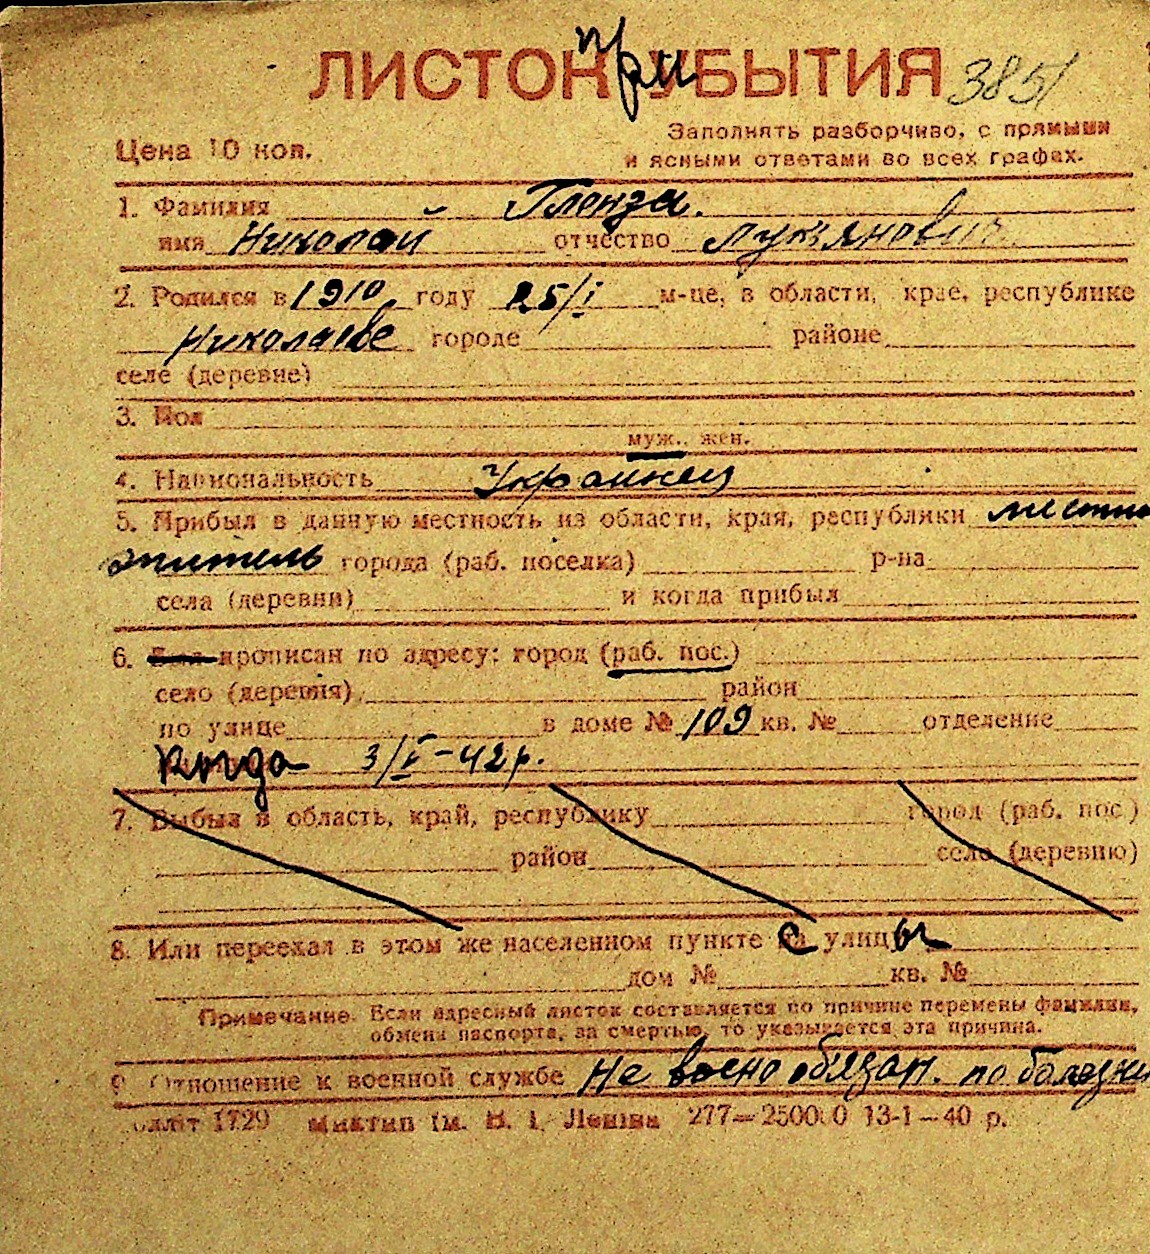 ЛИСТОК при УБЫТИЯ 3851
Цена 10 коп.
Заполнять разборчиво, с прямыми
и ясными ответами во всех графах.
1. Фамилия Гленза.
имя Николай отчество Лук'янович
2. Родился в 1910 году 25/I м-це, в области, крае, республике
Николаеве городе районе
селе (деревне)
3. Пол
муж., жен.
4. Национальность Украинец
5. Прибыл в данную местность из области, края, республики местн
житель города (раб. поселка) р-на
села (деревни) и когда прибыл
6. прописан по адресу: город (раб. пос.)
село (деревня) район
по улице в доме № 109 кв. № отделение
Когда 3/V-42 р.
7. Выбыл в область, край, республику город (раб. пос.)
район село (деревню)
8. Или переехал в этом же населенном пункте с улицы
дом № кв. №
Примечание. Если адресный листок составляется по причине перемены фамилии,
обмена паспорта, за смертью, то указывается эта причина.
9. Отношение к военной службе Не воено об'язан. по болезни
1729 Миктип ім. В. І. Леніна 277—25000 13-1-40 р.